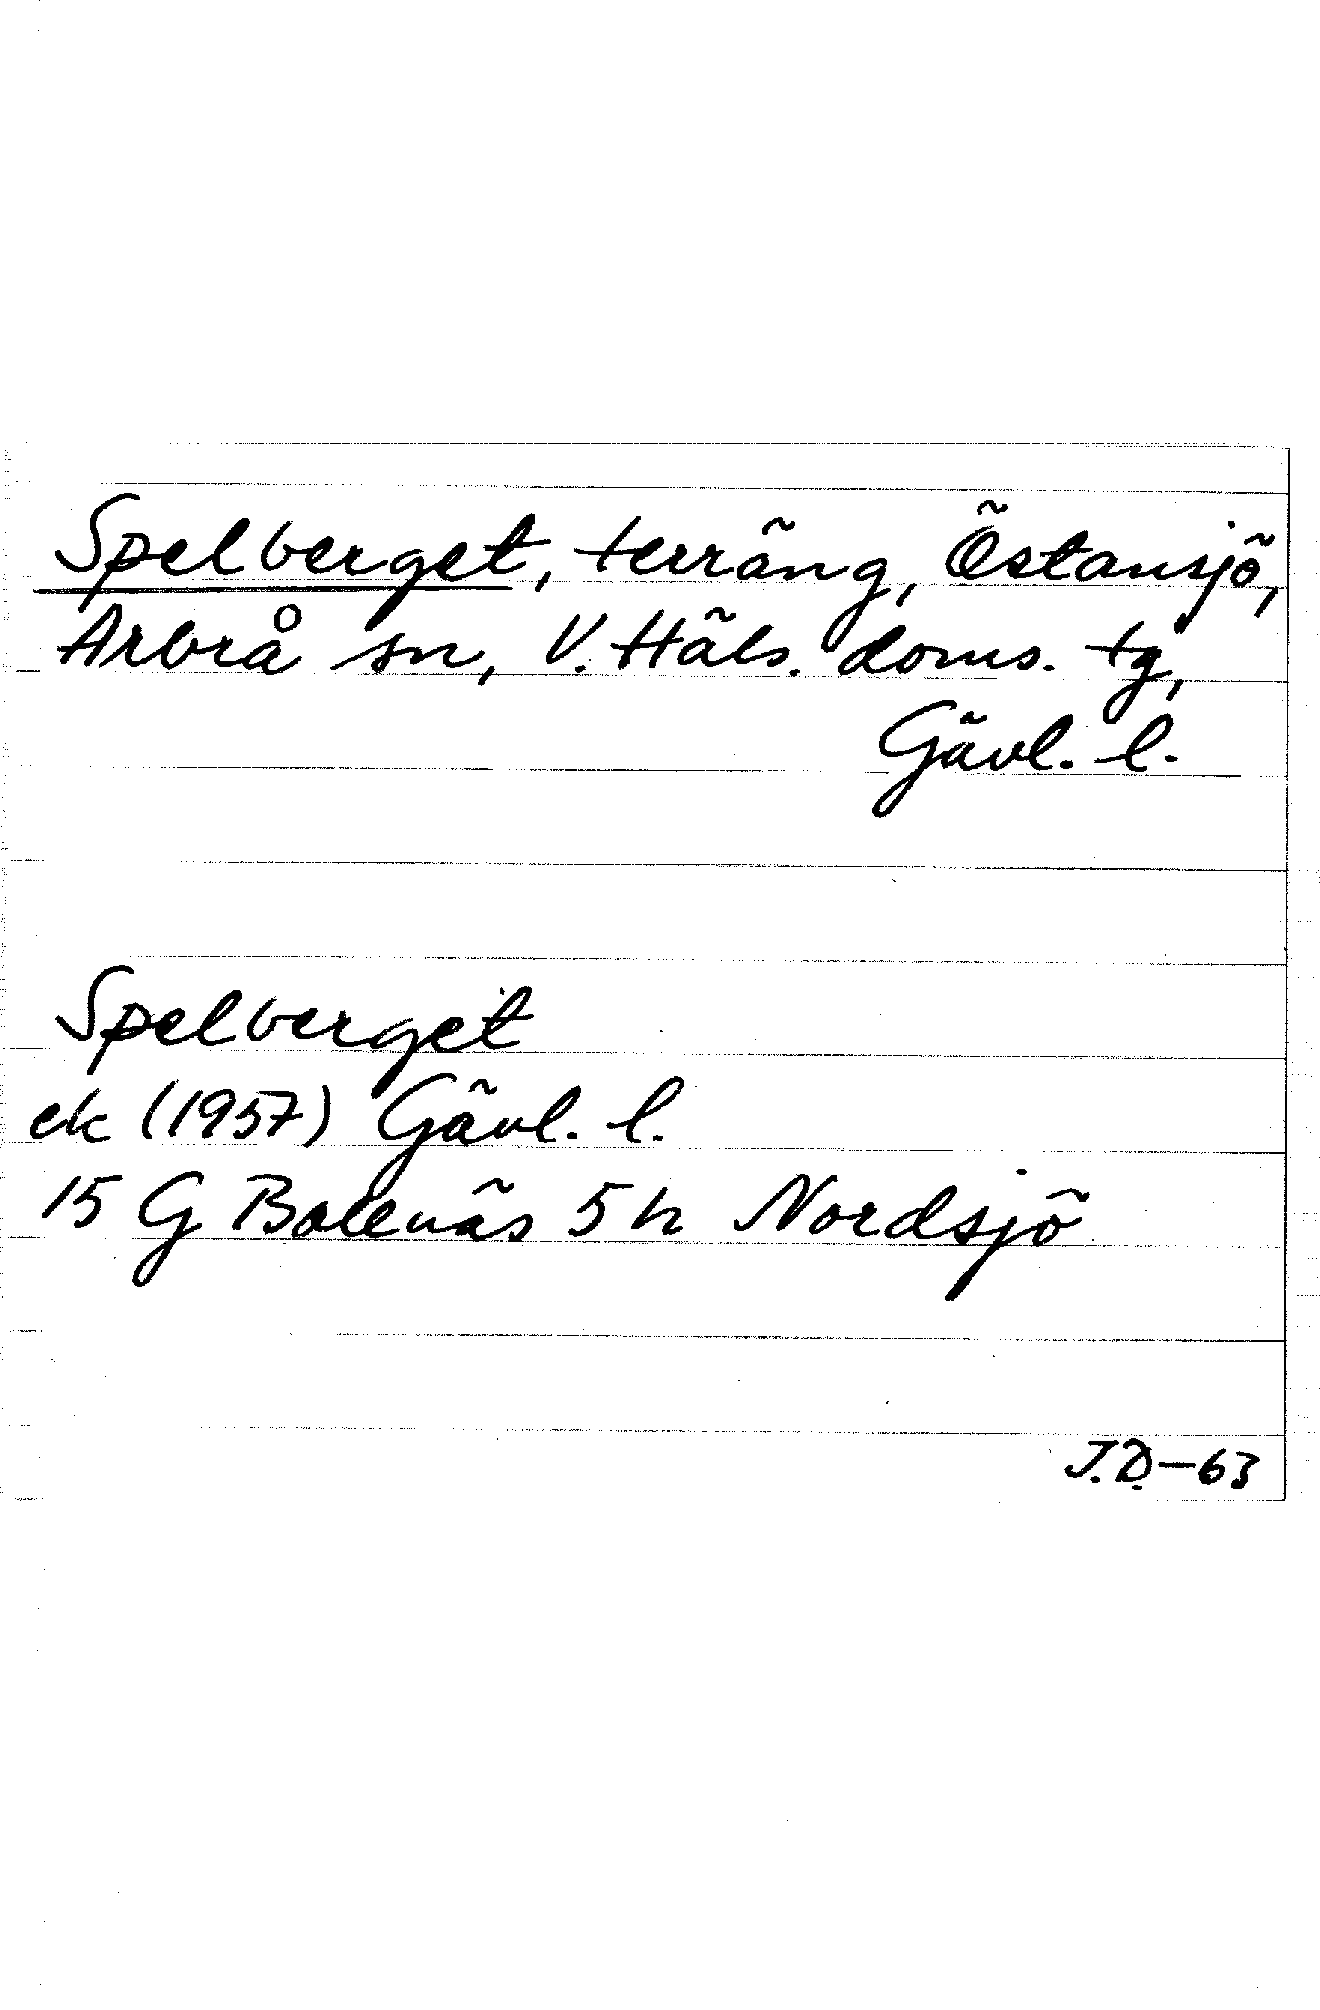 Spelberget, terräng, Östansjö,
Arbrå sn, V. Häls. doms. tg,
Gävl. l.
Spelberget
ek (1957) Gävl. l.
15 G Bollnäs 5 h Nordsjö
J.D.-63